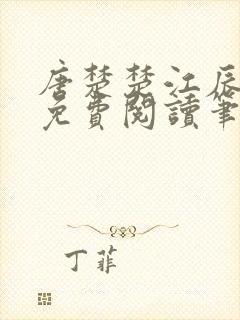 唐楚楚江辰
免費閱讀筆
丁菲